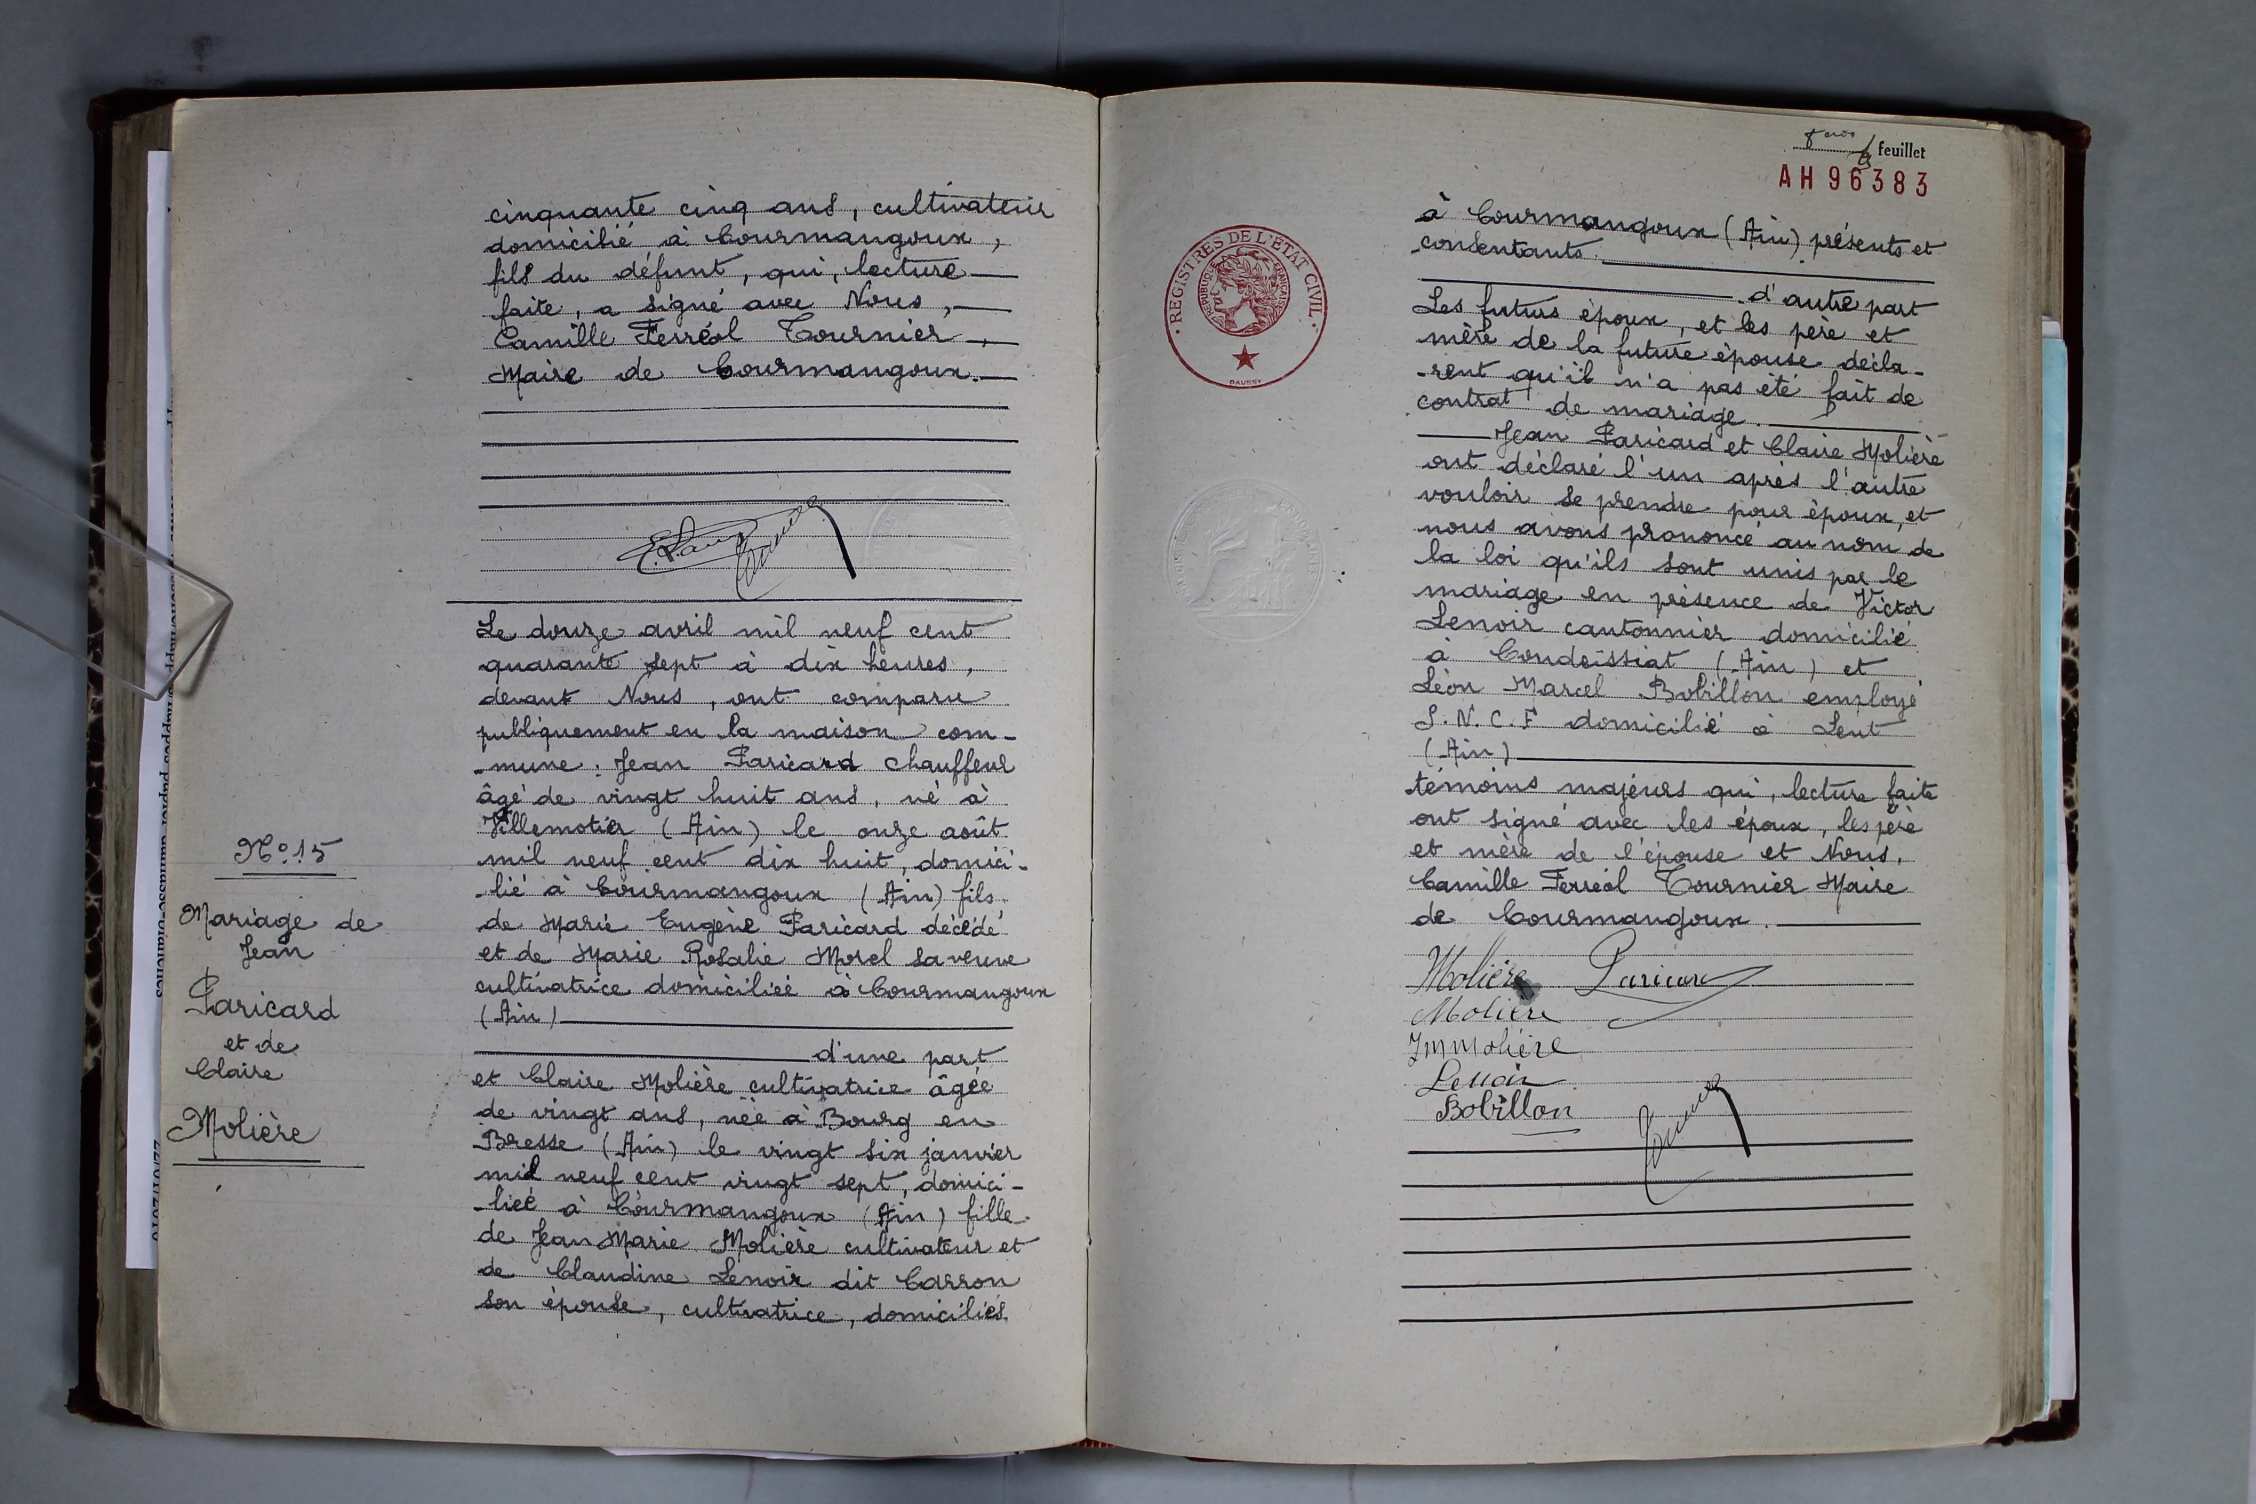 cinquante cinq ans, cultivateur
domicilié à Courmangoux,
fils du défunt, qui, lecture
faite, a signé avec Nous,
Camille Ferréol Tournier,
Maire de Courmangoux.
N° 15
Mariage de
Jean
Paricard
et de
Claire
Molière
Le douze avril mil neuf cent
quarante sept à dix heures,
devant Nous, ont comparu
publiquement en la maison com-
-mune : Jean Paricard chauffeur
âgé de vingt huit ans, né à
Villemotier (Ain) le onze août
mil neuf cent dix huit, domici-
-lié à Courmangoux (Ain) fils
de Marie Eugène Paricard décédé
et de Marie Rosalie Morel sa veuve
cultivatrice domiciliée à Courmangoux
(Ain)
d'une part
et Claire Molière cultivatrice âgée
de vingt ans, née à Bourg en
Bresse (Ain) le vingt six janvier
mil neuf cent vingt sept, domici-
-liée à Courmangoux (Ain) fille
de Jean Marie Molière cultivateur et
de Claudine Lenoir dit Carron
son épouse, cultivatrice, domiciliés
feuillet
AH 96383
REGISTRES DE L'ETAT CIVIL
REPUBLIQUE FRANÇAISE
DAUSSY
à Courmangoux (Ain) présents et
consentants.
d'autre part
Les futurs époux, et les père et
mère de la future épouse décla-
-rent qu'il n'a pas été fait de
contrat de mariage.
Jean Paricard et Claire Molière
ont déclaré l'un après l'autre
vouloir se prendre pour époux, et
nous avons prononcé au nom de
la loi qu'ils sont unis par le
mariage en présence de Victor
Lenoir cantonnier domicilié
à Condeissiat (Ain) et
Léon Marcel Bobillon employé
S.N.C.F domicilié à Lent
(Ain)
témoins majeurs qui, lecture faite
ont signé avec les époux, les père
et mère de l'épouse et Nous,
Camille Ferréol Tournier Maire
de Courmangoux.
Molière Paricard
Molière
JM Molière
Lenoir
Bobillon